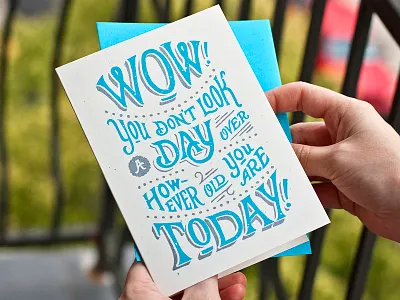 WOW!
YOU DON'T LOOK
A DAY OVER
HOWEVER OLD YOU ARE
TODAY!